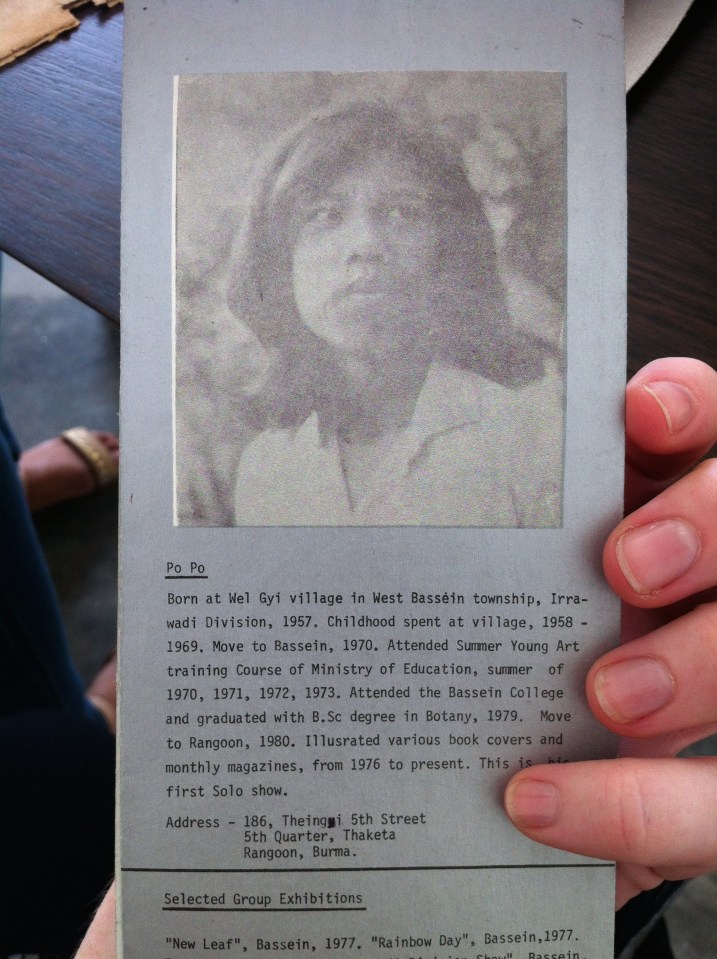 Po Po
Born at Wel Gyi village in West Bassein township, Irra-
wadi Division, 1957. Childhood spent at village, 1958 -
1969. Move to Bassein, 1970. Attended Summer Young Art
training Course of Ministry of Education, summer of
1970, 1971, 1972, 1973. Attended the Bassein College
and graduated with B.Sc degree in Botany, 1979. Move
to Rangoon, 1980. Illusrated various book covers and
monthly magazines, from 1976 to present. This is his
first Solo show.
Address - 186, Theingwi 5th Street
5th Quarter, Thaketa
Rangoon, Burma.
Selected Group Exhibitions
"New Leaf", Bassein, 1977. "Rainbow Day", Bassein,1977.
Division Show", Bassein,